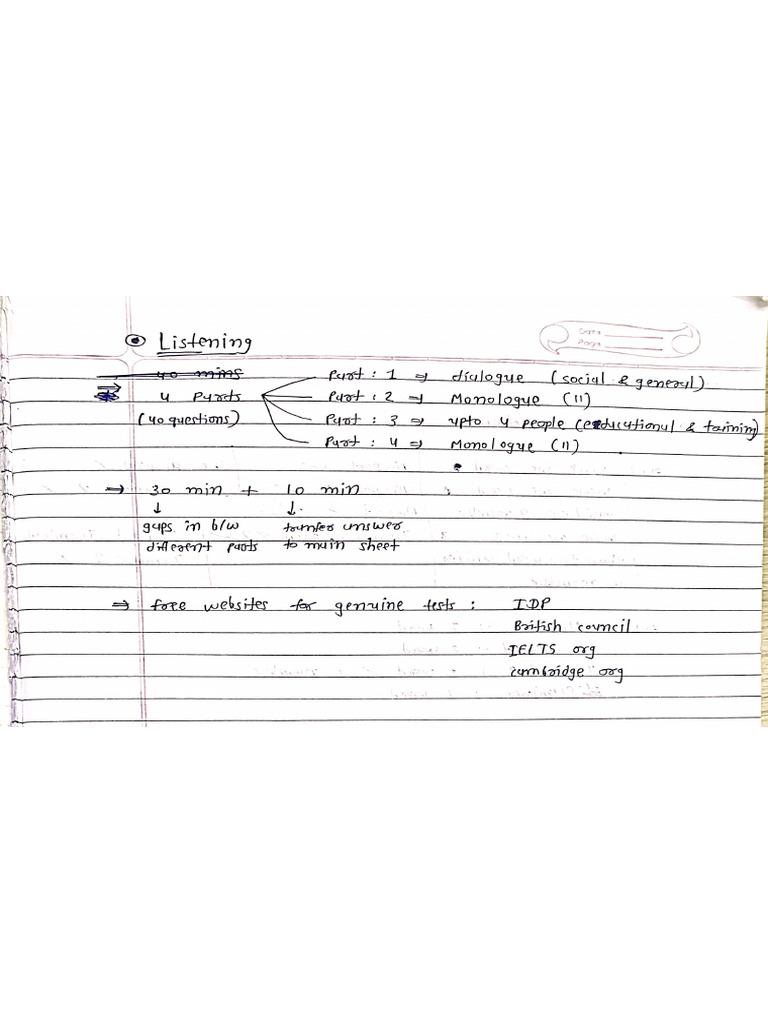 Listening
Date
Page
40 mins
4 Parts
(40 questions)
Part : 1 ⇒ dialogue (social & general)
Part : 2 ⇒ Monologue (11)
Part : 3 ⇒ upto 4 people (educational & taining)
Part : 4 ⇒ Monologue (11)
⇒ 30 min + 10 min
↓ ↓
gaps in b/w tranfer answer
different parts to main sheet
⇒ free websites for genuine tests : IDP
British council
IELTS org
cambridge org